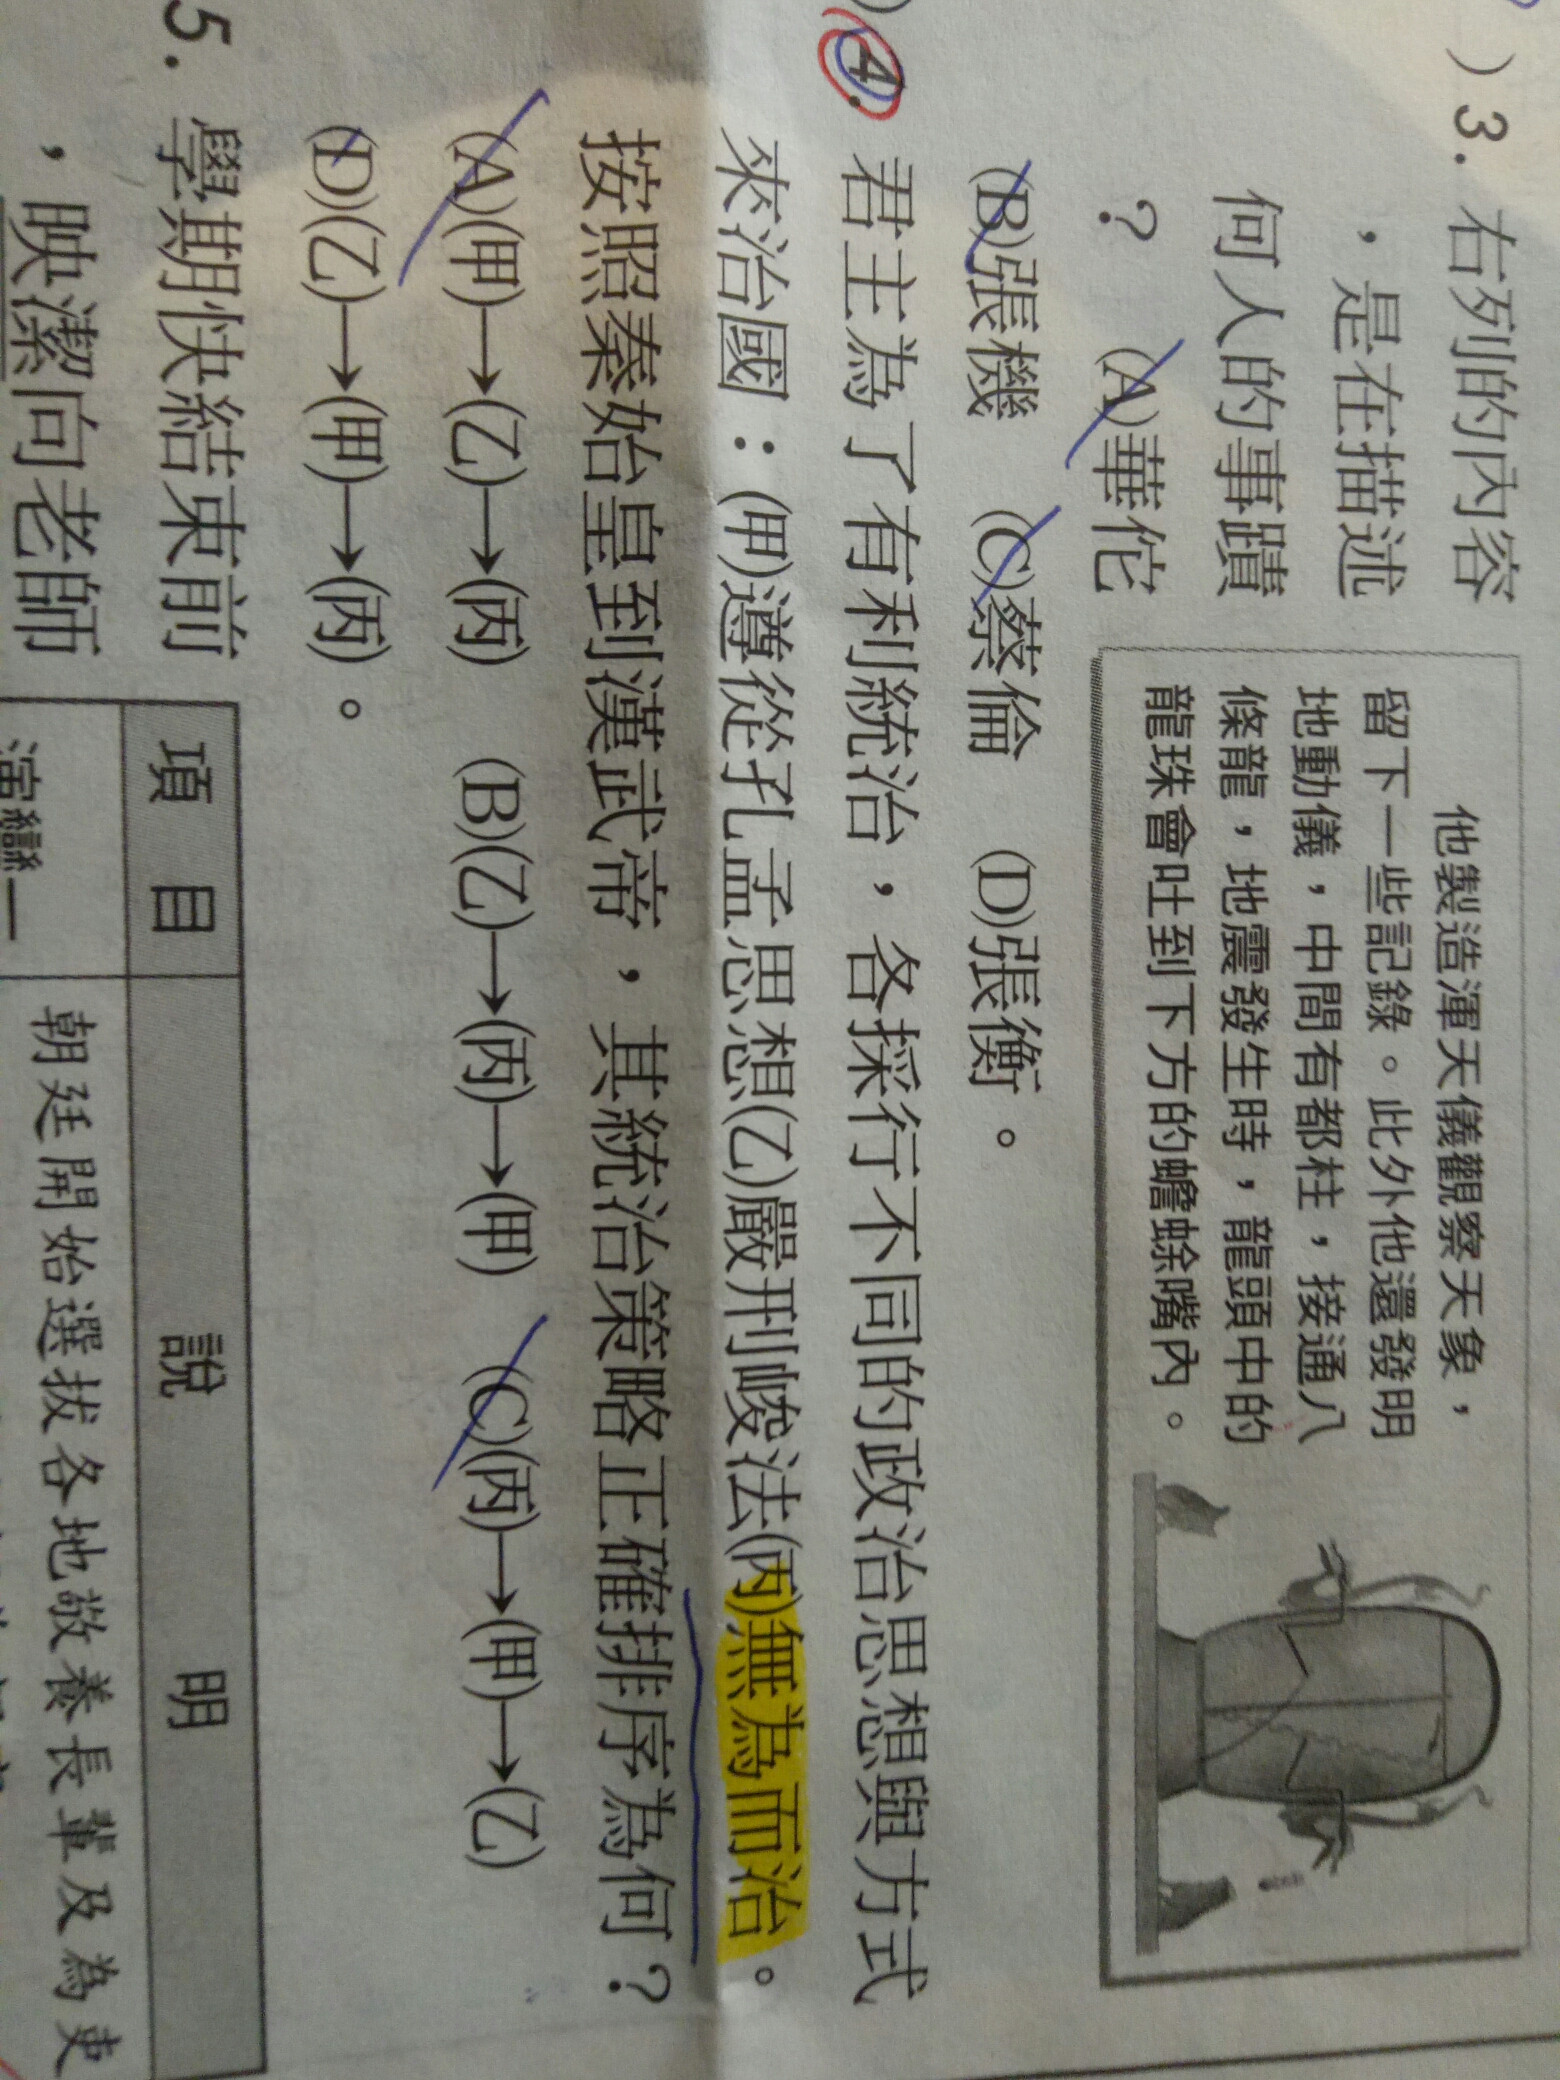 )3. 右列的內容
，是在描述
何人的事蹟
？ (A)華佗
(B)張機 (C)蔡倫 (D)張衡。
他製造渾天儀觀察天象，
留下一些記錄。此外他還發明
地動儀，中間有都柱，接通八
條龍，地震發生時，龍頭中的
龍珠會吐到下方的蟾蜍嘴內。
)4. 君主為了有利統治，各採行不同的政治思想與方式
來治國：(甲)遵從孔孟思想(乙)嚴刑峻法(丙)無為而治。
按照秦始皇到漢武帝，其統治策略正確排序為何？
(A)(甲)→(乙)→(丙) (B)(乙)→(丙)→(甲) (C)(丙)→(甲)→(乙)
(D)(乙)→(甲)→(丙)。
5. 學期快結束前
，映潔向老師
項目 說明
演變一 朝廷開始選拔各地敬養長輩及為吏